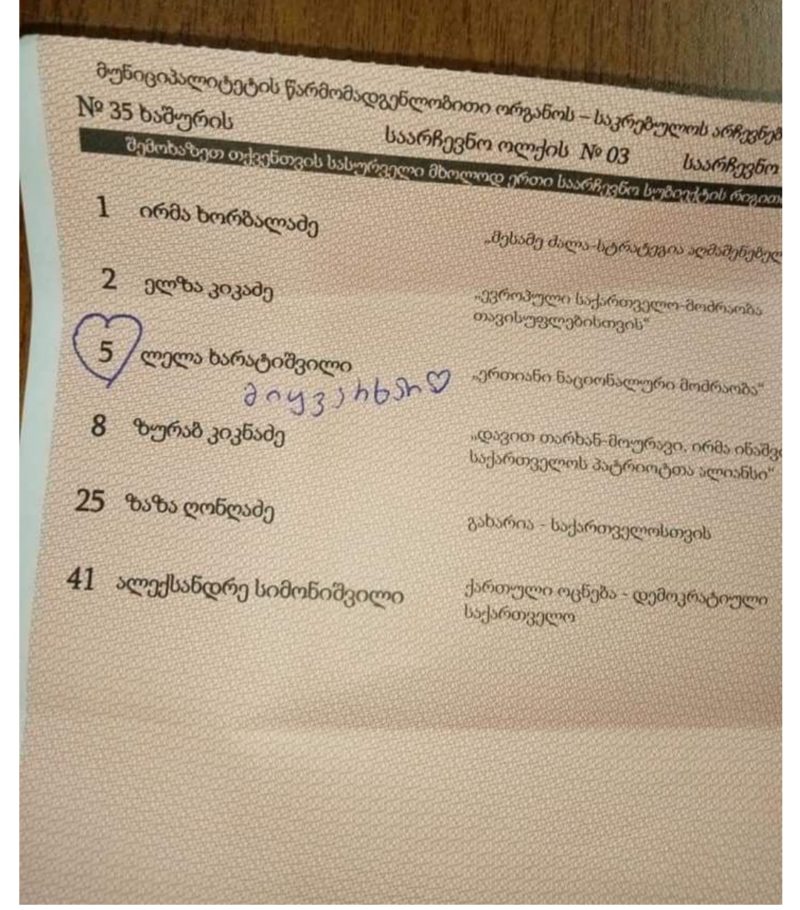 მუნიციპალიტეტის წარმომადგენლობითი ორგანოს – საკრებულოს არჩევნებ
№ 35 ხაშურის საარჩევნო ოლქის № 03 საარჩევნო
შემოხაზეთ თქვენთვის სასურველი მხოლოდ ერთი საარჩევნო სუბიექტის რიგითი
1 ირმა ხორბალაძე „მესამე ძალა-სტრატეგია აღმაშენებელ
2 ელზა კიკაძე „ევროპული საქართველო-მოძრაობა
თავისუფლებისთვის“
5 ლელა ხარატიშვილი „ერთიანი ნაციონალური მოძრაობა“
მიყვარხარ
8 ზურაბ კიკნაძე „დავით თარხან-მოურავი, ირმა ინაშვ
საქართველოს პატრიოტთა ალიანსი“
25 ზაზა ღონღაძე გახარია - საქართველოსთვის
41 ალექსანდრე სიმონიშვილი ქართული ოცნება - დემოკრატიული
საქართველო